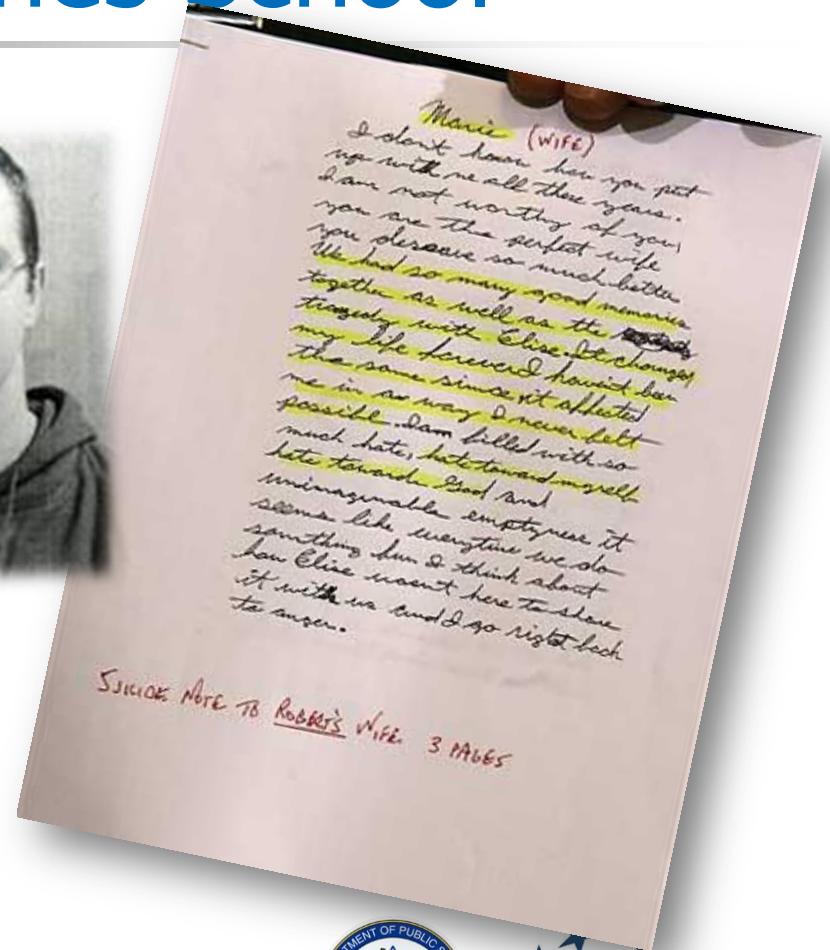 nes School
Marie (WIFE)
I don't know how you put
up with me all these years.
I am not worthy of you,
you are the perfect wife
you deserve so much better
We had so many good memories
together as well as the
tragedy with Elise. It changed
my life forever I haven't been
the same since it affected
me in a way I never felt
possible. I am filled with so
much hate, hate toward myself
hate towards God and
unimaginable emptyness it
seems like everytime we do
something fun I think about
how Elise wasn't here to share
it with us and I go right back
to anger.
SUICIDE NOTE TO ROBERT'S WIFE 3 PAGES
MENT OF PUBLIC S